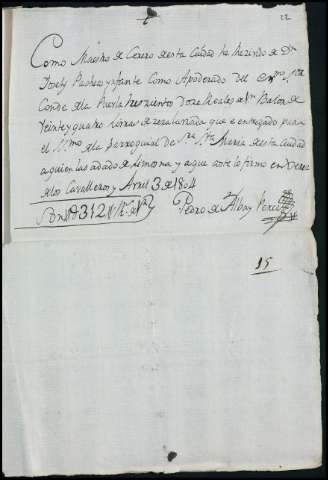 22
Como Maestro de Cerero desta Ciudad he recivido de Dn
Josef Pacheco ynfante Como Apoderado del Exmo. Sr.
Conde dela Puebla trescientos Doze Reales de Vn Balor de
Veinte y quatro Livras de zera labrada que e entregado para
el SSmo dela Parroquial de Sta Maria desta Ciudad
aquien las adado de Limosna y aque conste lo firmo en Xerez
delos Cavalleros y Avril 3 de 1804
Son 312 Rs de Vn
Pedro de Alba y Perez
15